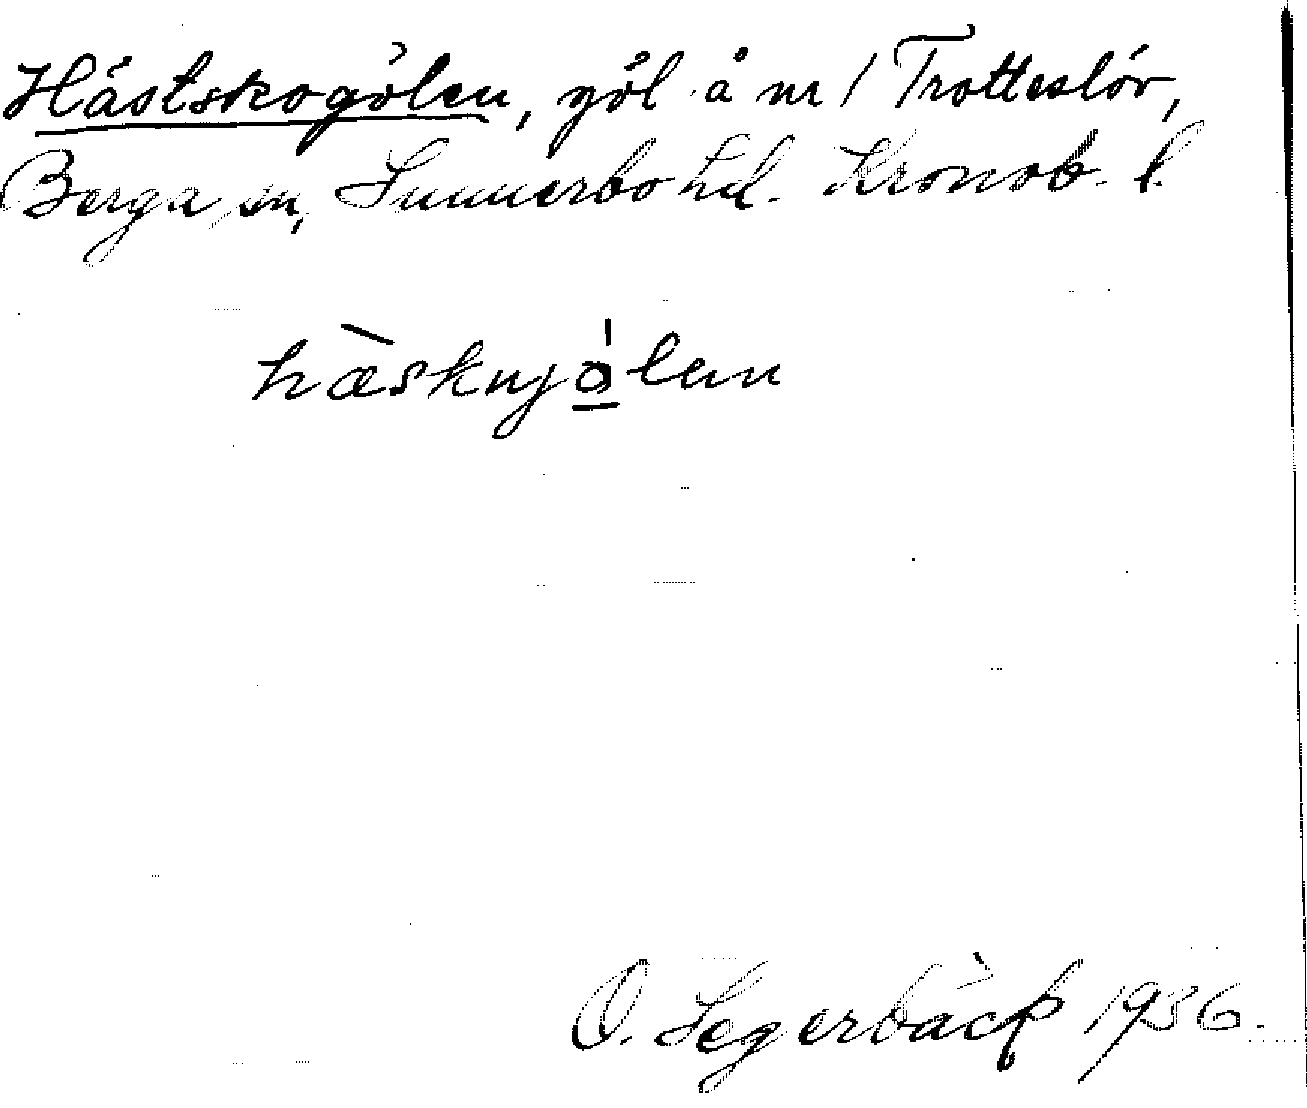 Hästskogölen, göl å nr 1 Trotteslöv,
Berga sn, Sunnerbo hd. Kronob. l.
hæskujölen
O. Segerbäck 1936.